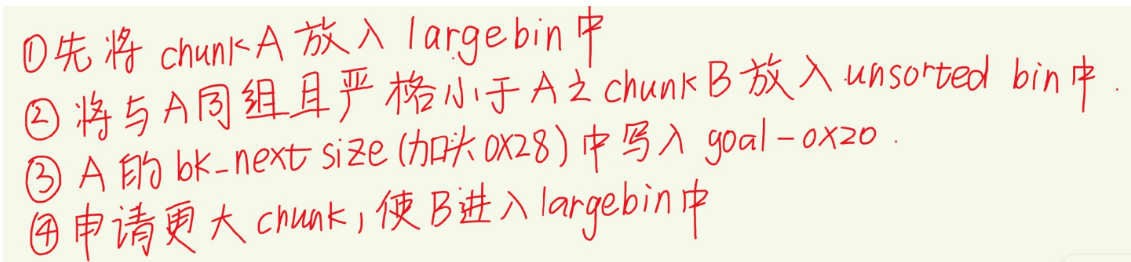 ①先将 chunkA 放入 largebin中
② 将与A同组且严格小于A之chunkB放入unsorted bin中.
③ A的bk_nextsize(加头0X28)中写入 goal-0x20.
④申请更大chunk,使B进入largebin中